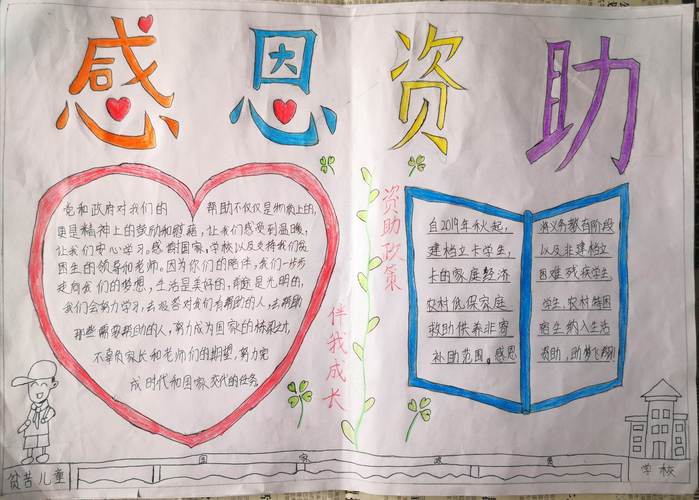 感恩资助
党和政府对我们的 帮助不仅仅是物质上的,
更是精神上的鼓励和慰藉,让我们感受到温暖,
让我们安心学习。感谢国家,学校以及支持我们贫
困生的领导和老师。因为你们的陪伴,我们一步步
走向我们的梦想,生活是美好的,前途是光明的,
我们会努力学习,去报答对我们有帮助的人,去帮助
那些需要帮助的人,努力成为国家的栋梁之材,
不辜负家长和老师们的期望,努力完
成时代和国家交代的任务
资助政策
伴我成长
自2019年秋起,
建档立卡学生,
卡的家庭经济
农村优保家庭
救助供养非寄
补助范围。感恩
将义务教育阶段
以及非建档立
困难残疾学生
学生,农村特困
宿生纳入生活
资助,助梦飞翔
国 家 政 策
贫苦儿童
学校